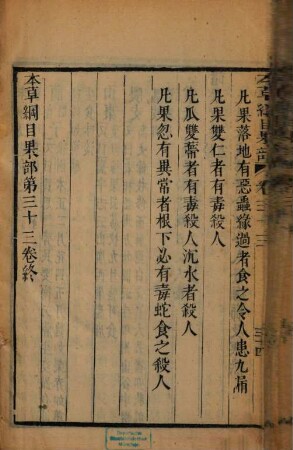 本草綱目果部 卷三十三 三十四
凡果落地有惡蟲緣過者食之令人患九漏
凡果雙仁者有毒殺人
凡瓜雙蔕者有毒殺人沉水者殺人
凡果忽有異常者根下必有毒蛇食之殺人
本草綱目果部第三十三卷終